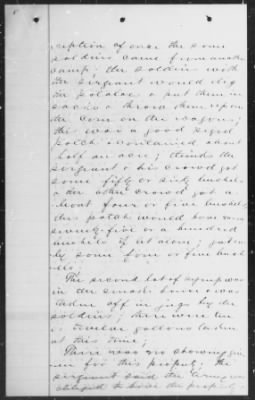 ception of one the some
soldiers came from another
camp; the soldier with
the sergeant would dig
the potatoes & put them in
sacks & throw them upon
the corn on the wagons;
this was a good sized
patch contained about
half an acre; thinks the
sergeant & his crowd got
some fifty or sixty bushels
& the other crowd got a
bout four or five bushels
this patch would have
seventy-five or a hundred
bushels if let alone;
by some four or five bush
els;
The second lot of syrup was
in the smoke house & was
taken off in jugs by the
soldiers; there were ten
or twelve gallons taken
at this time;
There was no
en for this property; the
sergeant said the army was
obliged to have the property